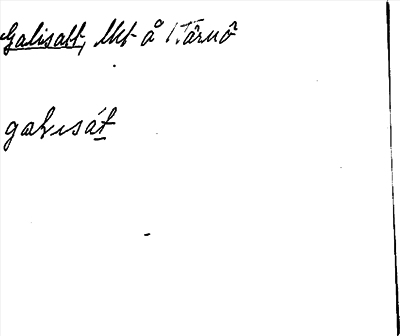 Galisatt, lkt å I. Tärnö
galısát